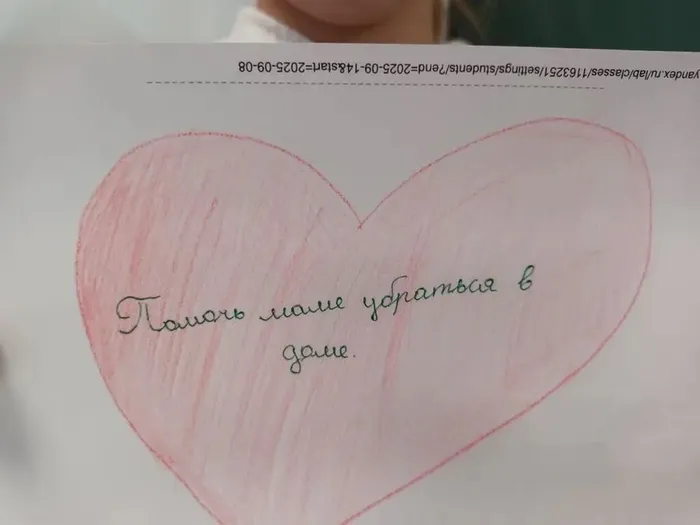 yandex.ru/lab/classes/1163251/settings/students/?end=2025-09-14&start=2025-09-08
Помочь маме убраться в
доме.